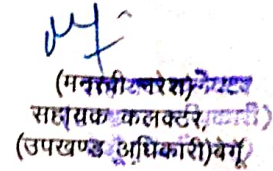 (मनस्वी नरेश)
सहायक कलक्टर,
(उपखण्ड अधिकारी)बेगूँ